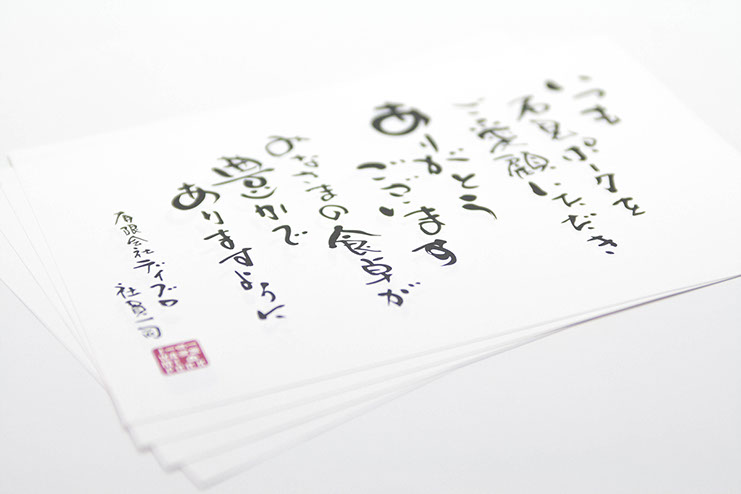 いつも
石見ポークを
ご愛顧いただき
ありがとう
ございます
みなさまの食卓が
豊かで
ありますように
有限会社ディブロ
社員一同